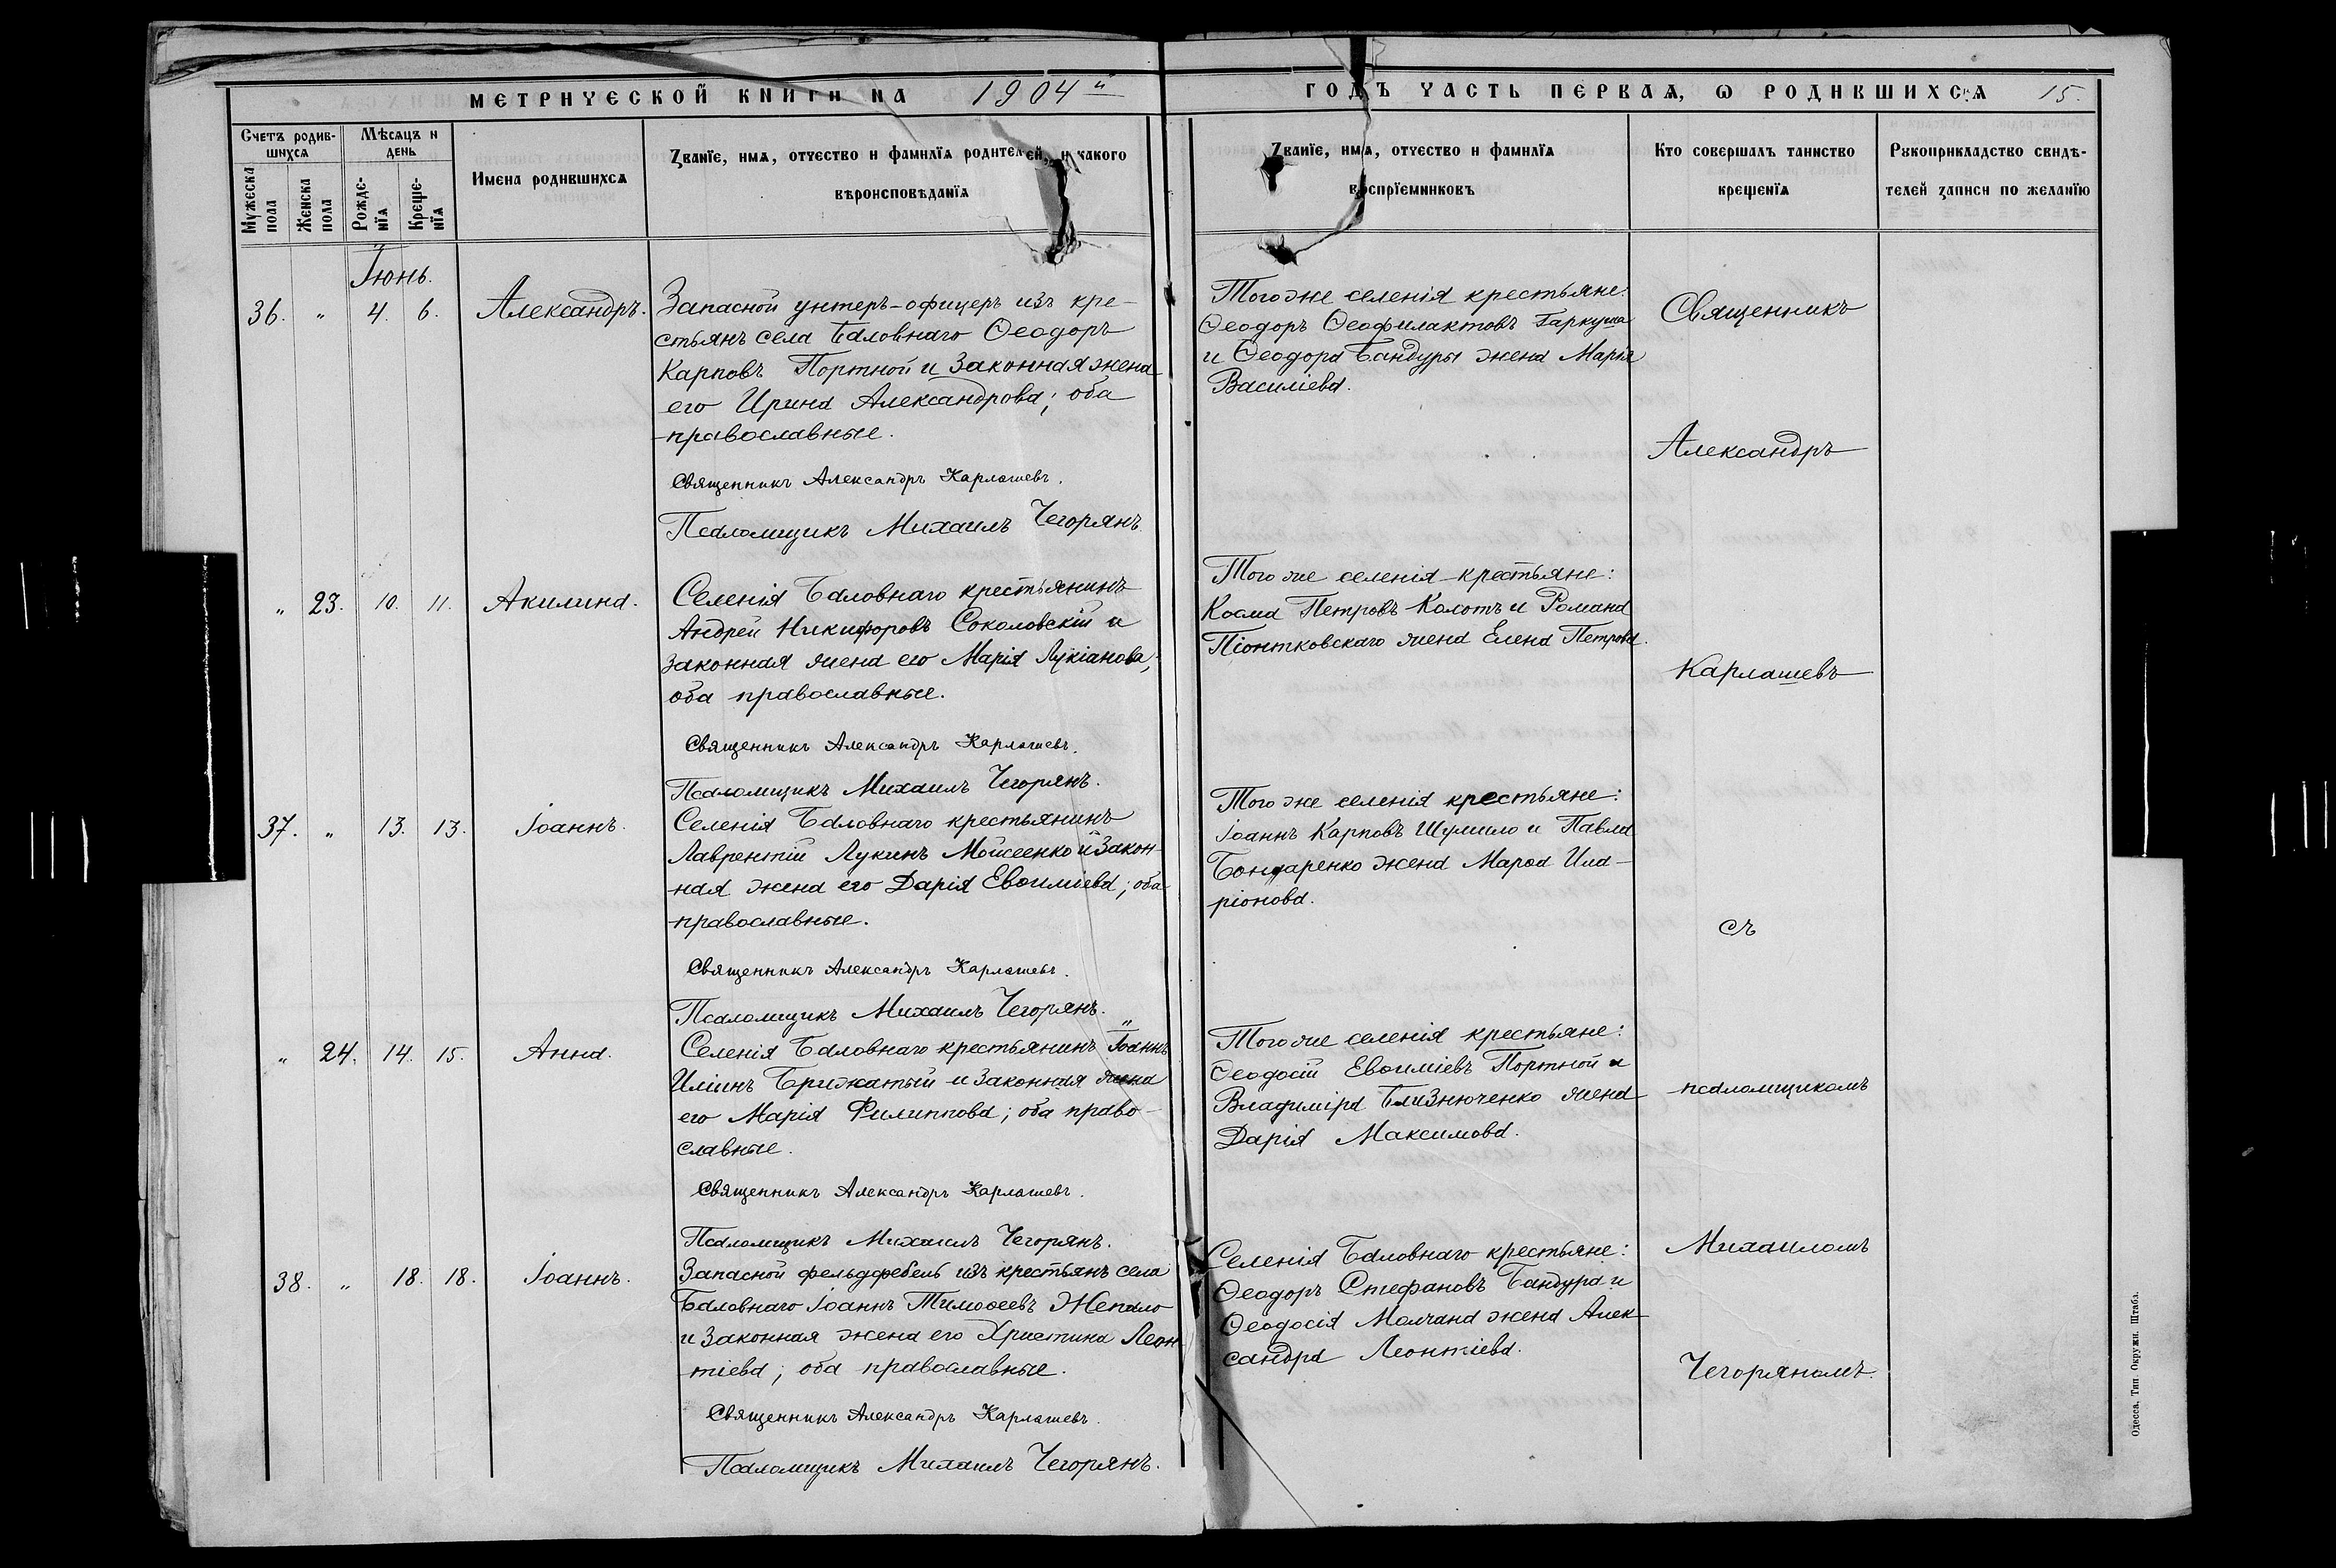 МЕТРИЧЕСКОЙ КНИГИ НА 1904й
ГОДЪ ЧАСТЬ ПЕРВАЯ, Ѡ РОДИВШИХСЯ 15.
Счетъ родив-
шихся
Мужеска
пола
Женска
пола
Мѣсяцъ и
день
Рожде-
нїя
Креще-
нїя
Имена родившихся
Званїе, имя, отчество и фамилїя родителей, и какого
вѣроисповѣданїя
Званїе, имя, отчество и фамилїя
воспрїемниковъ
Кто совершалъ таинство
крещенїя
Рукоприкладство свидѣ-
телей записи по желанїю
Іюнь.
36. „ 4. 6. Александръ.
Запасной унтеръ-офицеръ изъ кре-
стьянъ села Баловнаго Ѳеодоръ
Карповъ Портной и законная жена
его Ирина Александрова; оба
православные.
Священникъ Александръ Карлашевъ.
Псаломщикъ Михаилъ Чегорянъ
Того же селенія крестьяне:
Ѳеодоръ Ѳеофилактовъ Гаркуша
и Ѳеодора Бандуры жена Марія
Василіева.
„ 23. 10. 11. Акилина.
Селенія Баловнаго крестьянинъ
Андрей Никифоровъ Соколовскій и
законная жена его Марія Лукіанова;
оба православные.
Священникъ Александръ Карлашевъ.
Псаломщикъ Михаилъ Чегорянъ.
Того же селенія крестьяне:
Косма Петровъ Колотъ и Романа
Піонтковскаго жена Елена Петрова.
37. „ 13. 13. Іоаннъ.
Селенія Баловнаго крестьянинъ
Лаврентій Лукинъ Мойсеенко и закон-
ная жена его Дарія Евѳиміева; оба
православные.
Священникъ Александръ Карлашевъ.
Псаломщикъ Михаилъ Чегорянъ.
Того же селенія крестьяне:
Іоаннъ Карповъ Шумило и Павла
Бондаренко жена Марѳа Ила-
ріонова.
„ 24. 14. 15. Анна.
Селенія Баловнаго крестьянинъ Іоаннъ
Иліинъ Брижатый и законная жена
его Марія Филиппова; оба право-
славные.
Священникъ Александръ Карлашевъ.
Псаломщикъ Михаилъ Чегорянъ.
Того же селенія крестьяне:
Ѳеодосій Евѳиміевъ Портной и
Владиміра Близнюченко жена
Дарія Максимова.
38. „ 18. 18. Іоаннъ.
Запасной фельдфебель изъ крестьянъ села
Баловнаго Іоаннъ Тимоѳеевъ Жепало
и законная жена его Христина Леон-
тіева; оба православные.
Священникъ Александръ Карлашевъ.
Псаломщикъ Михаилъ Чегорянъ.
Селенія Баловнаго крестьяне:
Ѳеодоръ Стефановъ Бандура и
Ѳеодосія Молчана жена Алек-
сандра Леонтіева.
Священникъ
Александръ
Карлашевъ
съ
псаломщикомъ
Михаиломъ
Чегоряномъ.
Одесса, Тип. Окружн. Штаба.